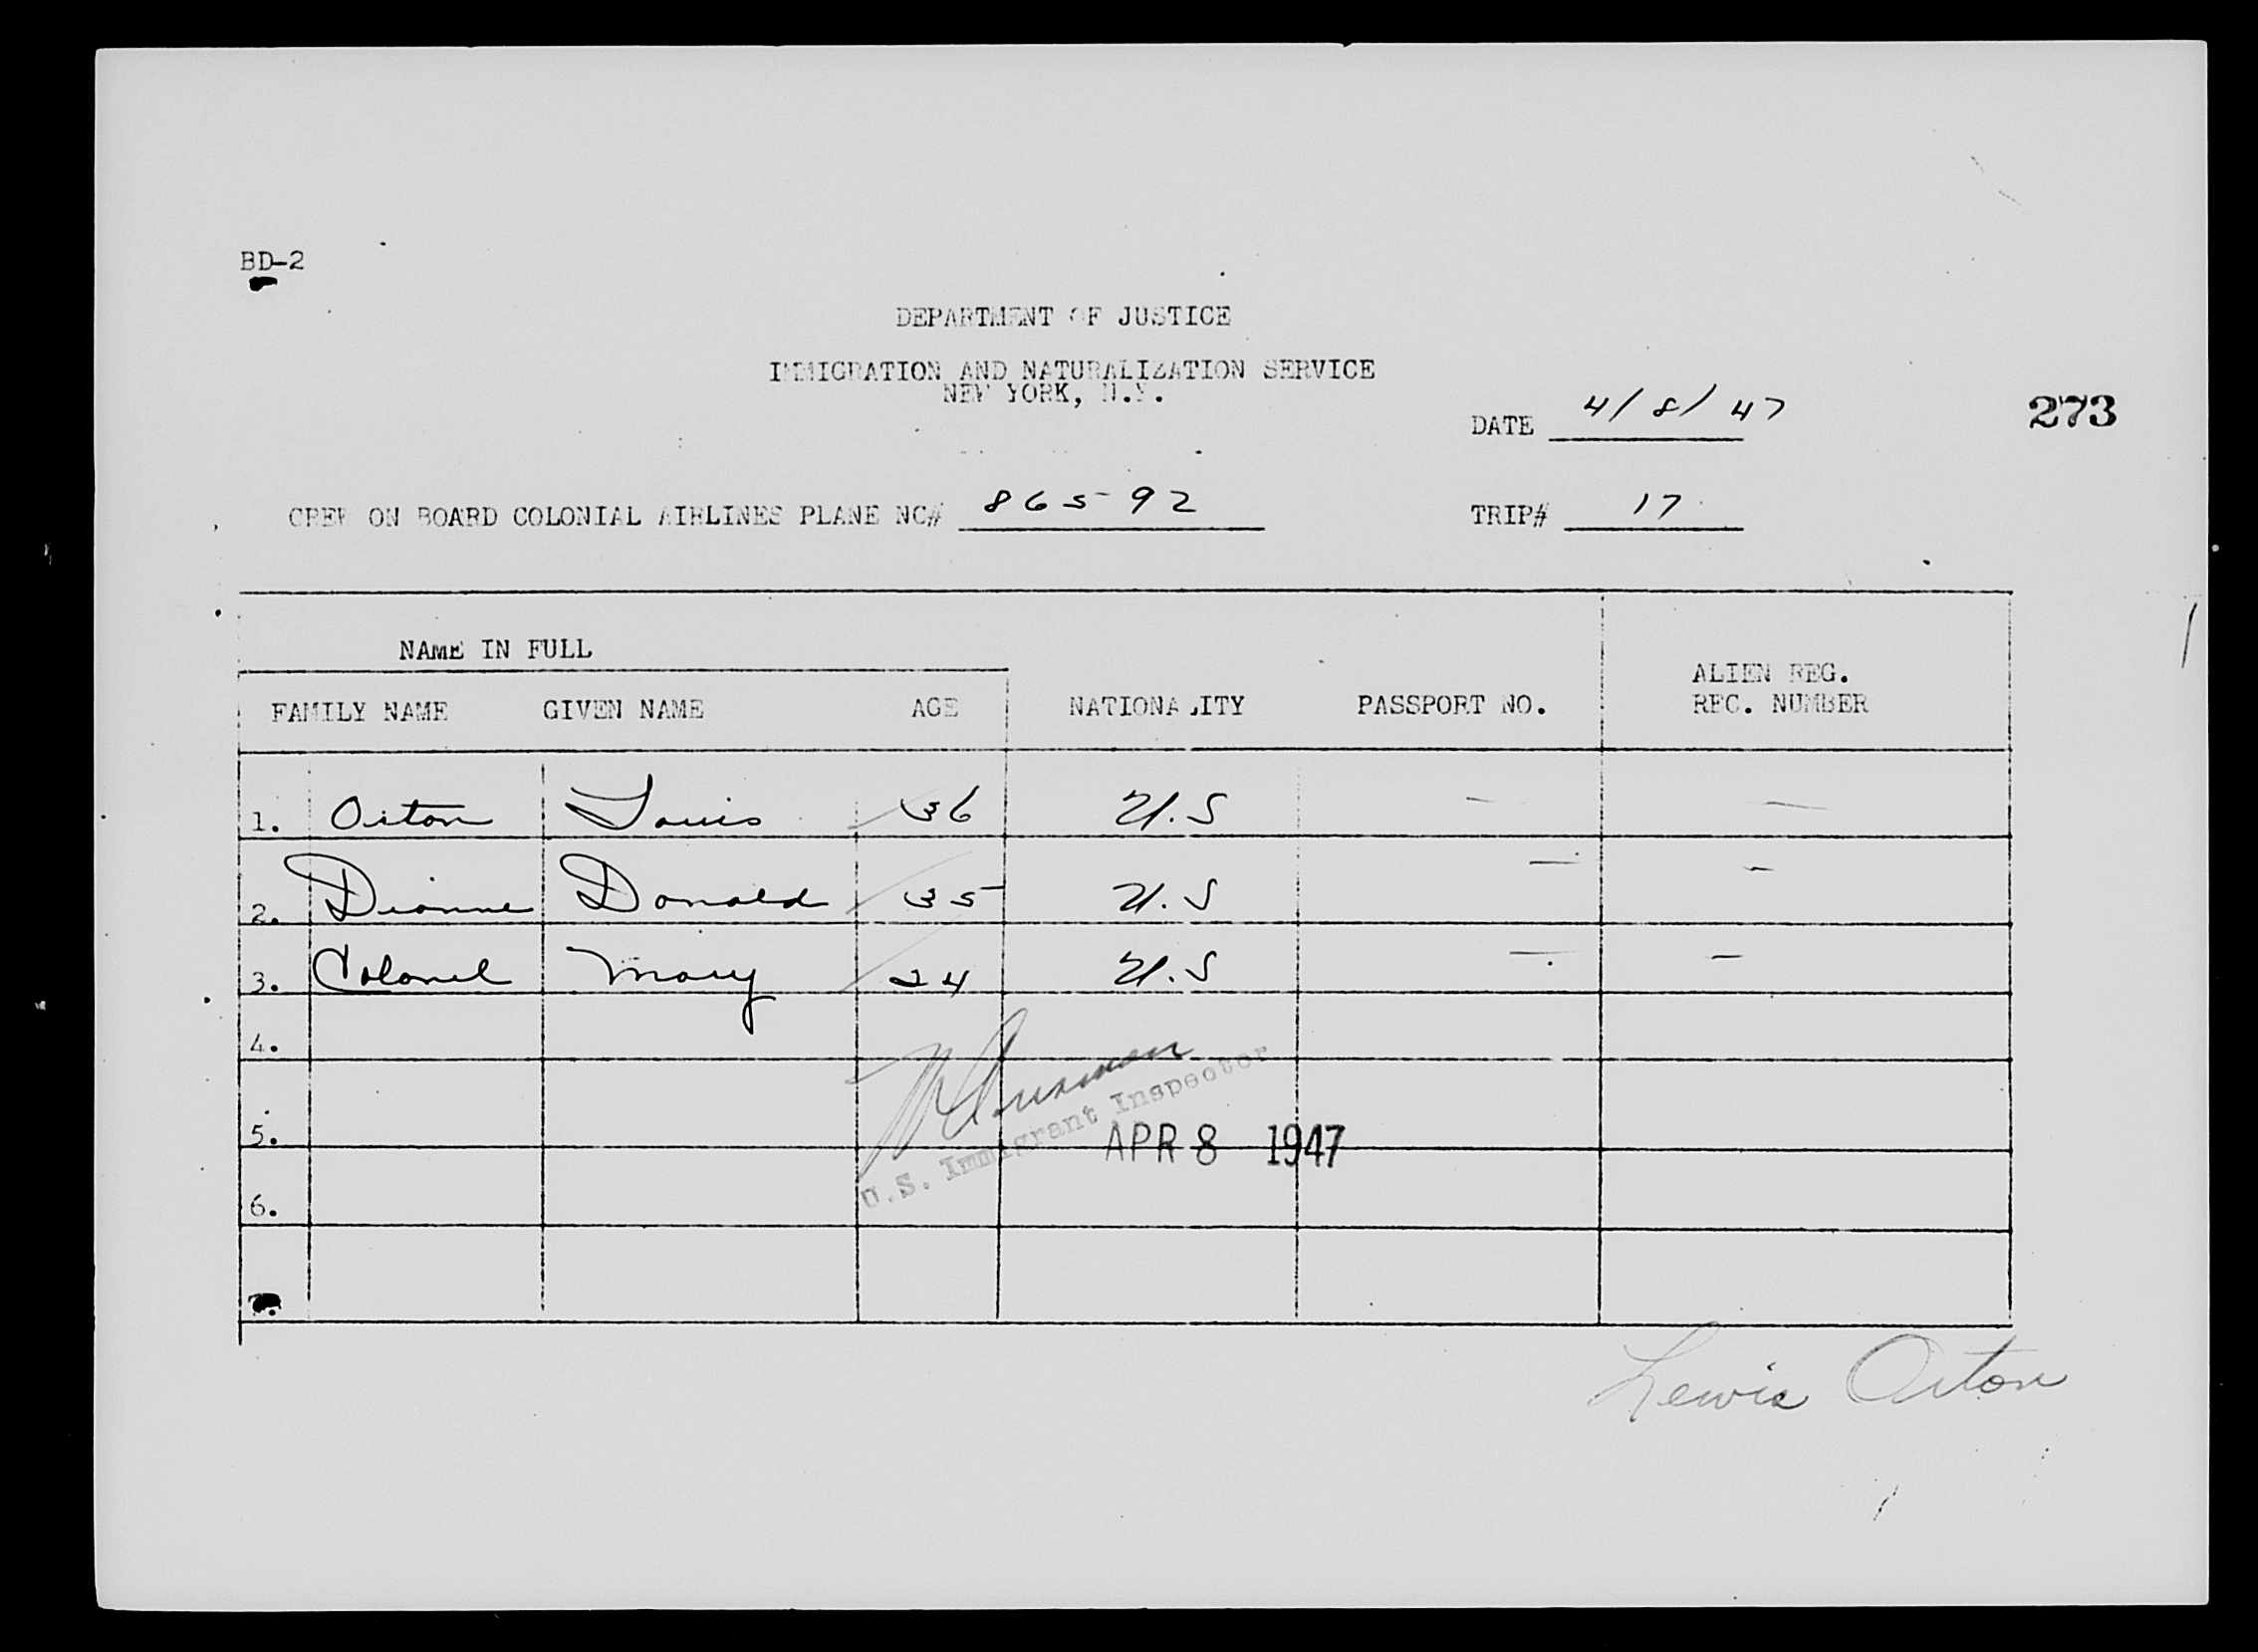 BD-2
DEPARTMENT OF JUSTICE
IMMIGRATION AND NATURALIZATION SERVICE
NEW YORK, N.Y.
DATE 4/8/47
273
CREW ON BOARD COLONIAL AIRLINES PLANE NC# 86592
TRIP# 17
NAME IN FULL
FAMILY NAME GIVEN NAME AGE NATIONALITY PASSPORT NO. ALIEN REG. REC. NUMBER
1. Oiton Louis 36 U.S — —
2. Dionne Donald 35 U.S — —
3. Colonel Mary 24 U.S — —
4.
5.
U.S. Immigrant Inspector
APR 8 1947
6.
7.
Lewis Oiton